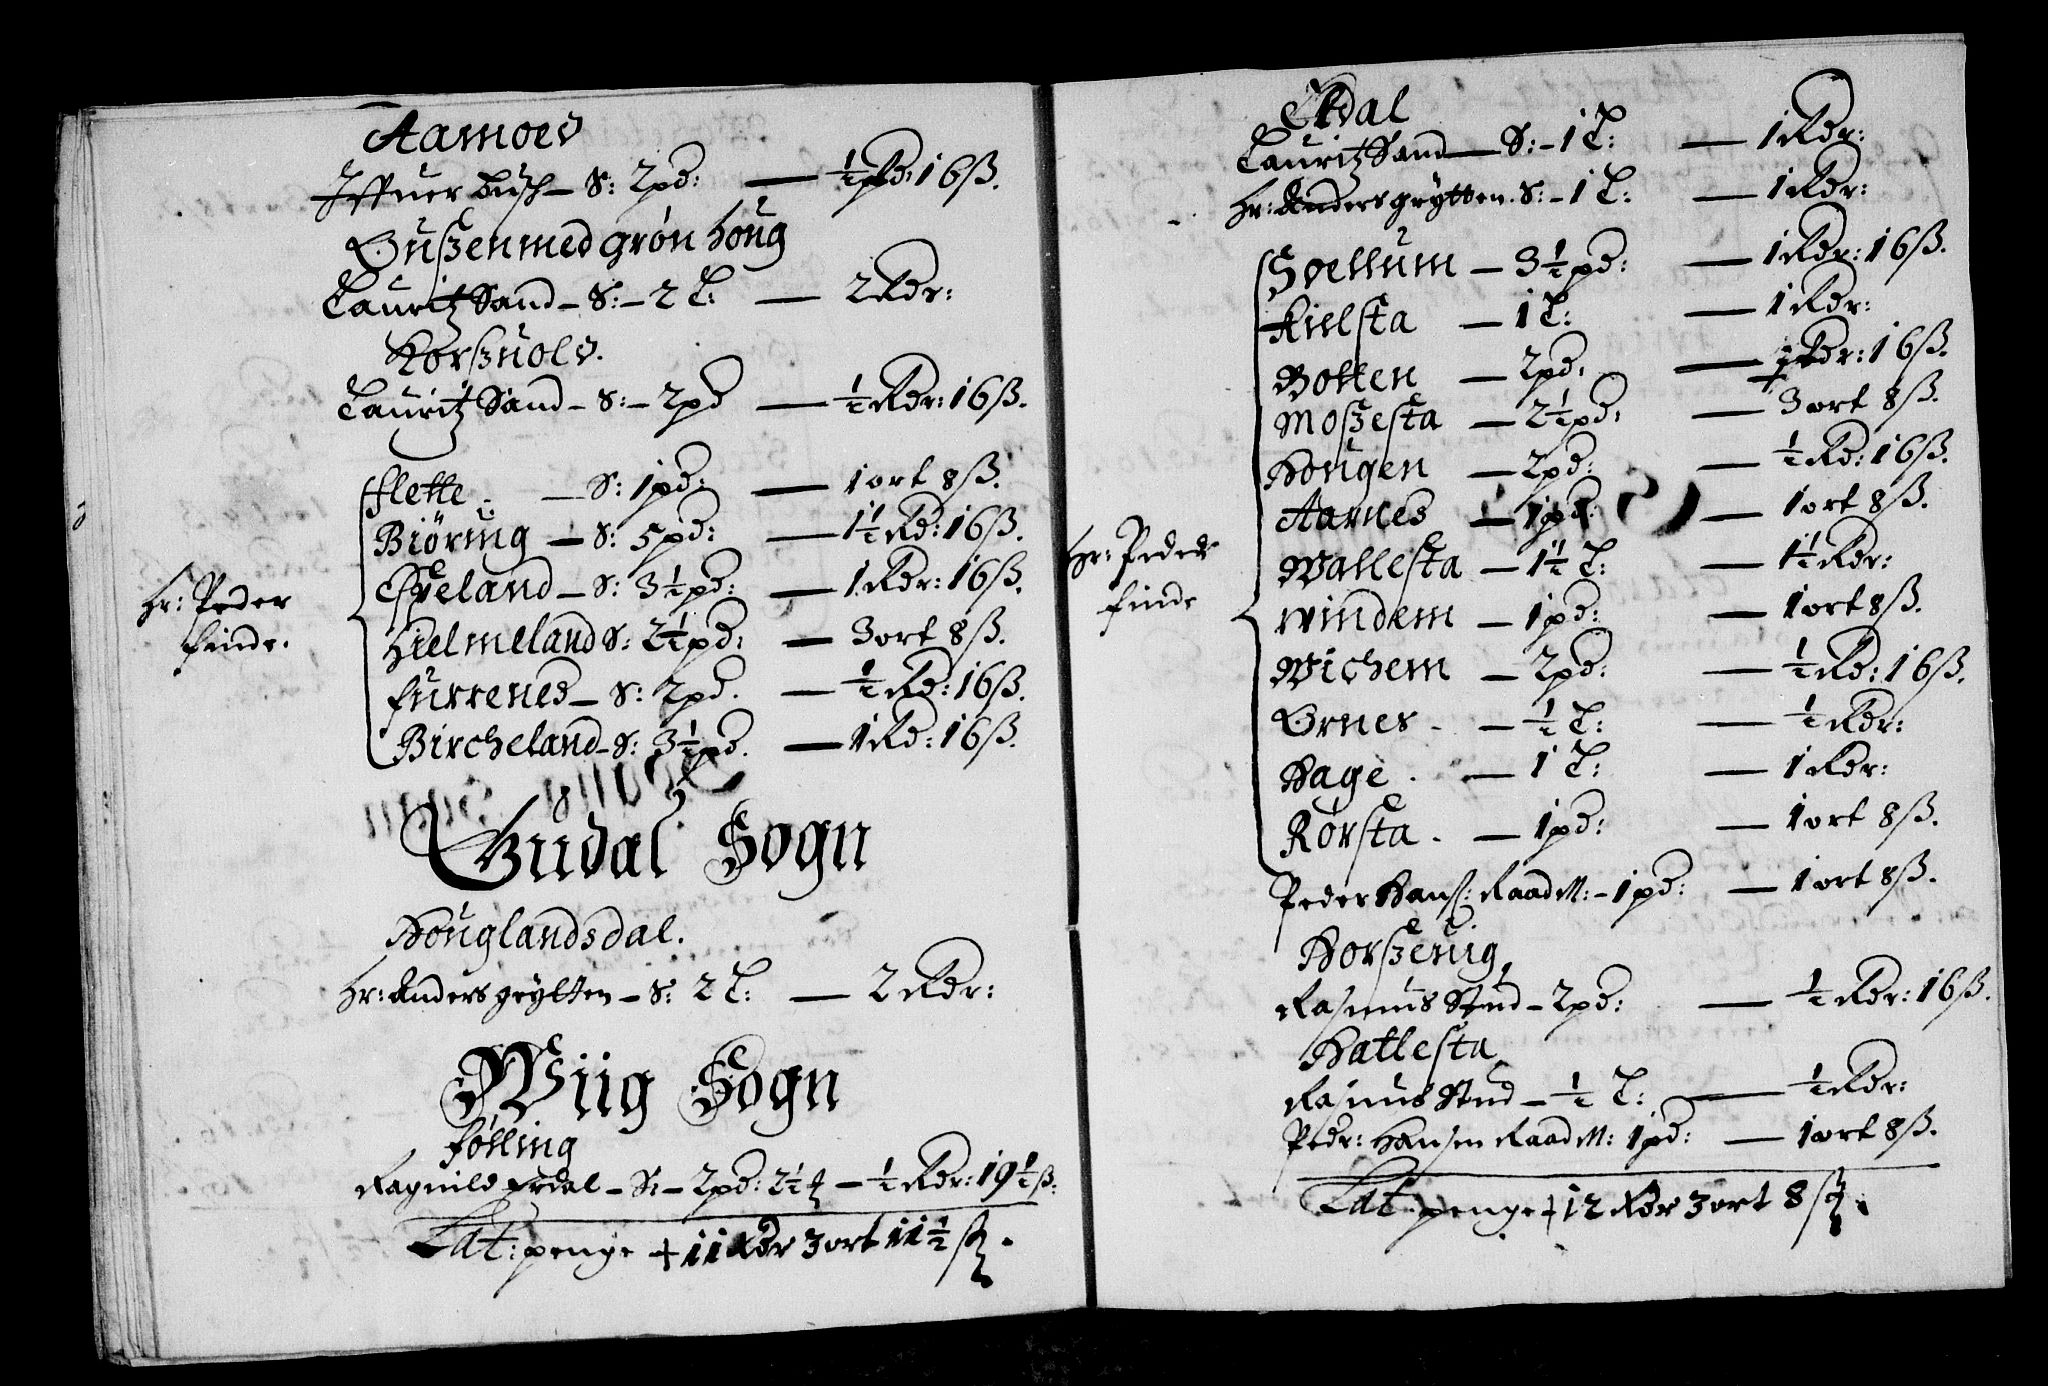 Aamoed
Iffuer Busch – S: 2pd: — ½ Rd: 16ß.
Gußen med grøn houg
Lauritz Sand – S: – 2 L: — 2 Rdr:
Korßuold.
Lauritz Sand – S: – 2pd — ½ Rdr: 16ß.
flekke. — S: 1pd: — 1 ort 8ß.
Biöring — S: 5pd: — 1½ Rd: 16ß.
Espeland – S: 3½pd: — 1 Rdr: 16ß.
Hielmeland S: 2½pd: — 3 ort 8ß.
furrenes – S: 2pd. — ½ Rd: 16ß.
Bircheland – S: 3½pd. — 1 Rd: 16ß.
Hr: Peder
finde.
Gudal Sogn
Houglandsdal.
Hr: Anders grytten – S: 2 L: — 2 Rdr:
Wiig Sogn
følling
Ragnild Erdal – S: – 2pd: 2½ — ½ Rdr: 19½ß:
Lat: penge + 11 Rdr 3 ort 11½ ß.
Eddal
Lauritz Sand — S: – 1 L: — 1 Rdr:
Hr: Anders grytten. S: – 1 L: — 1 Rdr:
Soellum – 3½pd: — 1 Rdr: 16ß.
Kielsta — 1 L: — 1 Rdr:
Botten — 2pd: — ½ Rdr: 16ß.
Moßesta — 2½pd: — 3 ort 8ß.
Hougen — 2pd: — ½ Rd: 16ß.
Aarnes — 1pd: — 1 ort 8ß.
Wallesta — 1½ L: — 1½ Rdr:
windem – 1pd: — 1 ort 8ß.
Wichem – 2pd: — ½ Rd: 16ß.
Ornes – — ½ L: — ½ Rdr:
Hage . — 1 L: — 1 Rdr:
Rørsta . — 1pd: — 1 ort 8ß.
Hr: Peder
finde
Peder Hans: Raadm: – 1pd: — 1 ort 8ß.
Horßeuig
Rasmus Stud – 2pd: — ½ Rdr: 16ß.
Hatlesta
Rasmus Stud – ½ L: — ½ Rdr:
Pedr: Hansen Raadm: 1pd: — 1 ort 8ß.
Lat penge + 12 Rdr 3 ort 8 ß.